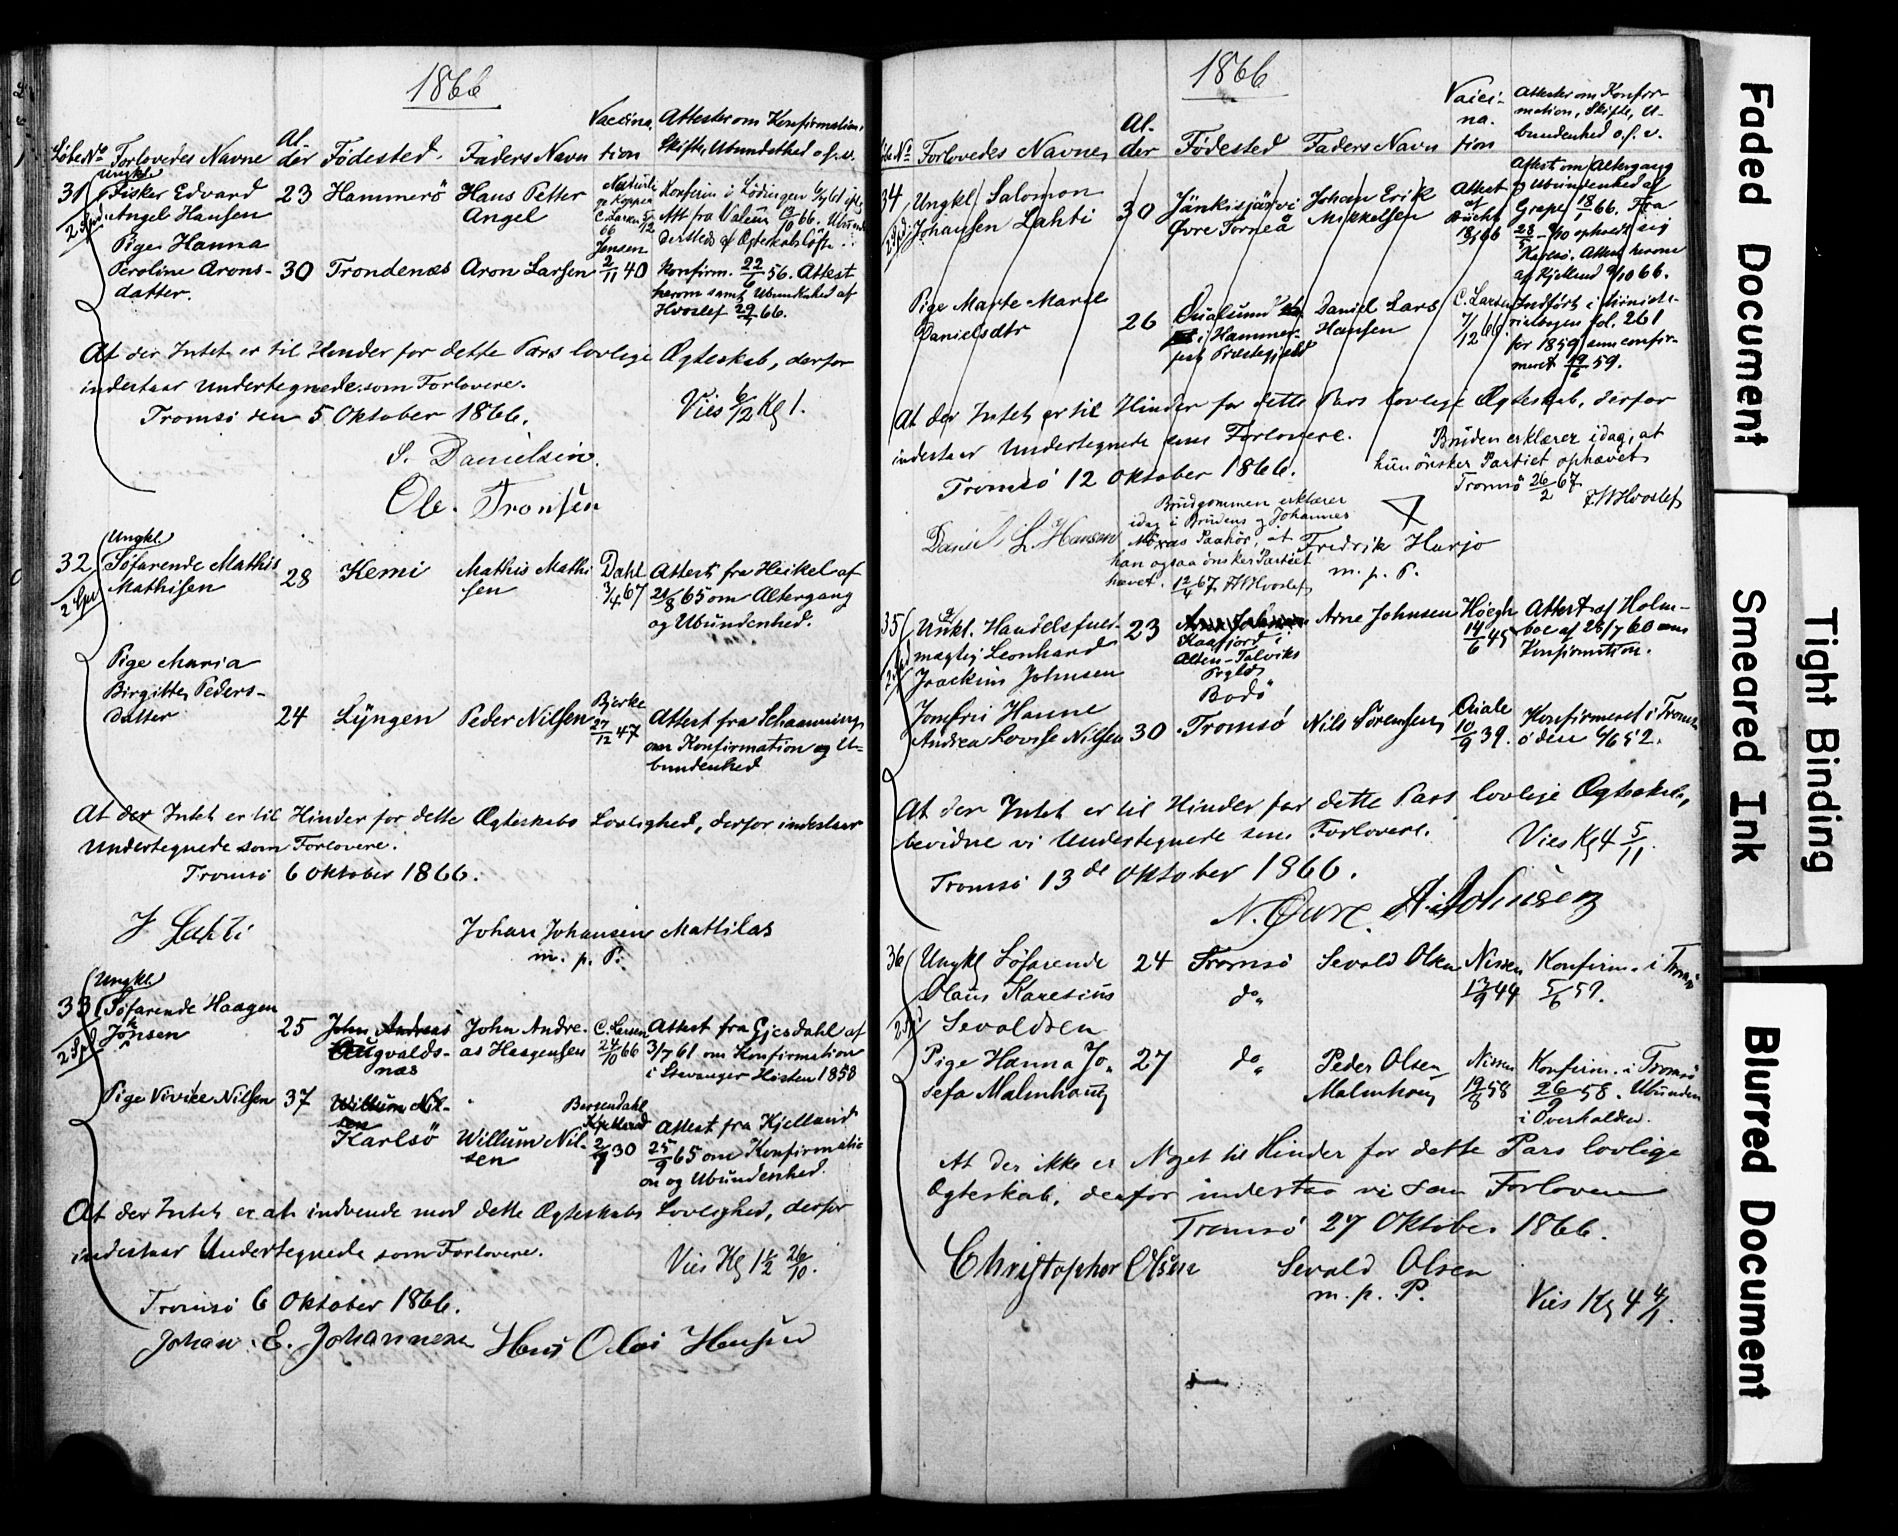 1866
Løbe No Forlovedes Navne Alder Fødested. Faders Navn Vaccination Attester om Konfirmation, Skifte, Ubundethed o.s.v.
31 Ungkl.
Fisker Edvard 23 Hammerö Hans Petter
Angel Hansen Angel
2 Spd.
Konfirm. i Lödingen
Att. fra
Jensen
Pige Hanna
Peroline Arons- 30 Trondenæs Aron Larsen 2/11 40 Konfirm. 22/6 56. Attest
datter. herom samt Ubundenhed af
Hvoslef 29/9 66.
At der Intet er til Hinder for dette Pars lovlige Ægteskab, derfor
indestaar Undertegnede som Forlovere.
Tromsö den 5 Oktober 1866. Vies 6/12 Kl 1.
S. Danielsen.
Ole Tronsen
32 Ungkl.
Söfarende Mathis 28 Kemi Mathis Mathi Dahl Attest fra Heikel af
Mathisen sen 3/4 67 21/8 65 om Altergang
2 Spd og Ubundenhed.
Pige Maria
Birgitte Peders- Bjerke
datter 24 Lyngen Peder Nilsen 27/12 47 Attest fra Schaanning
om Konfirmation og U-
bundenhed
At der Intet er til Hinder for dette Ægteskabs Lovlighed, derfor indestaar
Undertegnede som Forlovere.
Tromsö 6 Oktober 1866.
J Lahti Johan Johansen Mattilas
m. p. P.
33 Ungkl.
Söfarende Haagen 25 John Andreas John Andre- C. Larsen Attest fra Gjesdahl af
Jonsen Augvalds- as Haagensen 24/10 66 3/7 61 om Konfirmation
2 Spd næs i Stavanger Hösten 1858
Pige Vivike Nilsen 37 Willum Nil-
sen
Karlsö Willum Nil- 30 Attest fra Kjelland
sen 25/9 65 om Konfirmati
on og Ubundenhed.
At der Intet er at indvende mod dette Ægteskabs Lovlighed, derfor
indestaar Undertegnede som Forlovere. Vies Kl 1 1/2 26/10.
Tromsö 6 Oktober 1866.
Johan. E. Johannesen Hans Olai Hansen
1866
No Forlovedes Navne Alder Födested Faders Navn Vaccination Attester om Konfirmation, Skifte, Ubundenhed o.s.v.
34 Ungkl Salomon 30 Jänkisjärvi Johan Erik Attest af Attest om Altergang
Johansen Lahti Övre Torneå Mikkelsen 66 og Ubundenhed af
2 Spd. Grape 18/1 66. Fra
28/5 - 9/10 opholdt sig
Karlsö. Attest herom
af Kjelland 9/10 66.
Pige Marte Marie 26 Qualsund Daniel Lars C. Larsen Indfört i Ministe-
Danielsdtr i Hammer- Hansen 7/12 66 rialbogen fol. 261
fest Præstegjeld for 1859 som confir-
meret 19/6 59.
At der Intet er til Hinder for dette Pars lovlige Ægteskab, derfor
indestaar Undertegnede som Forlovere.
Tromsö 12 Oktober 1866.
Bruden erklærer idag, at
hun önsker Partiet ophævet
Tromsö 26/2 67
F W Hvoslef
Brudgommen erklærer
idag i Brudens og Johannes
at
han ogsaa önsker Partiet
hævet. 12/4 67. F W Hvoslef
Daniel L. Hansen Fredrik Harjo
m. p. P.
35 Unkl. Handelsfuld- 23 Arne Johnsen Höegh Attest af Holm-
mægtig Leonhard Kaafjord i 14/6 45 boe af 28/7 60 om
Joackim Johnsen Alten-Talviks Konfirmation.
Prgld
Bodö
Jomfru Hanne
Andrea Lovise Nilsen 30 Tromsö Nils Sörensen Qvale Konfirmeret i Troms
10/9 39. ö den 6/6 52.
At der Intet er til Hinder for dette Pars lovlige Ægteskab,
bevidne vi Undertegnede som Forlovere. Vies Kl 4 5/11.
Tromsö 13de Oktober 1866.
36 Ungkl Söfarende 24 Tromsö Sevald Olsen Nissen Konfirm. i Tromsö
Olaus Karesius do 44 5/6 59.
Sevaldsen
2 Spd
Pige Hanna Jo- 27 do Peder Olsen Nissen Konfirm. i Tromsö
sefa Malmhaug Malmhaug 19/8 58 26/9 58. Ubunden
i Overhalden.
At der ikke er Noget til Hinder for dette Pars lovlige
Ægteskab, derfor indestaa vi som Forlovere
Tromsö 27 Oktober 1866.
Christopher Olsen Sevald Olsen
m. p. P.
Vies Kl 4
Faded Document
Smeared Ink
Tight Binding
Blurred Document